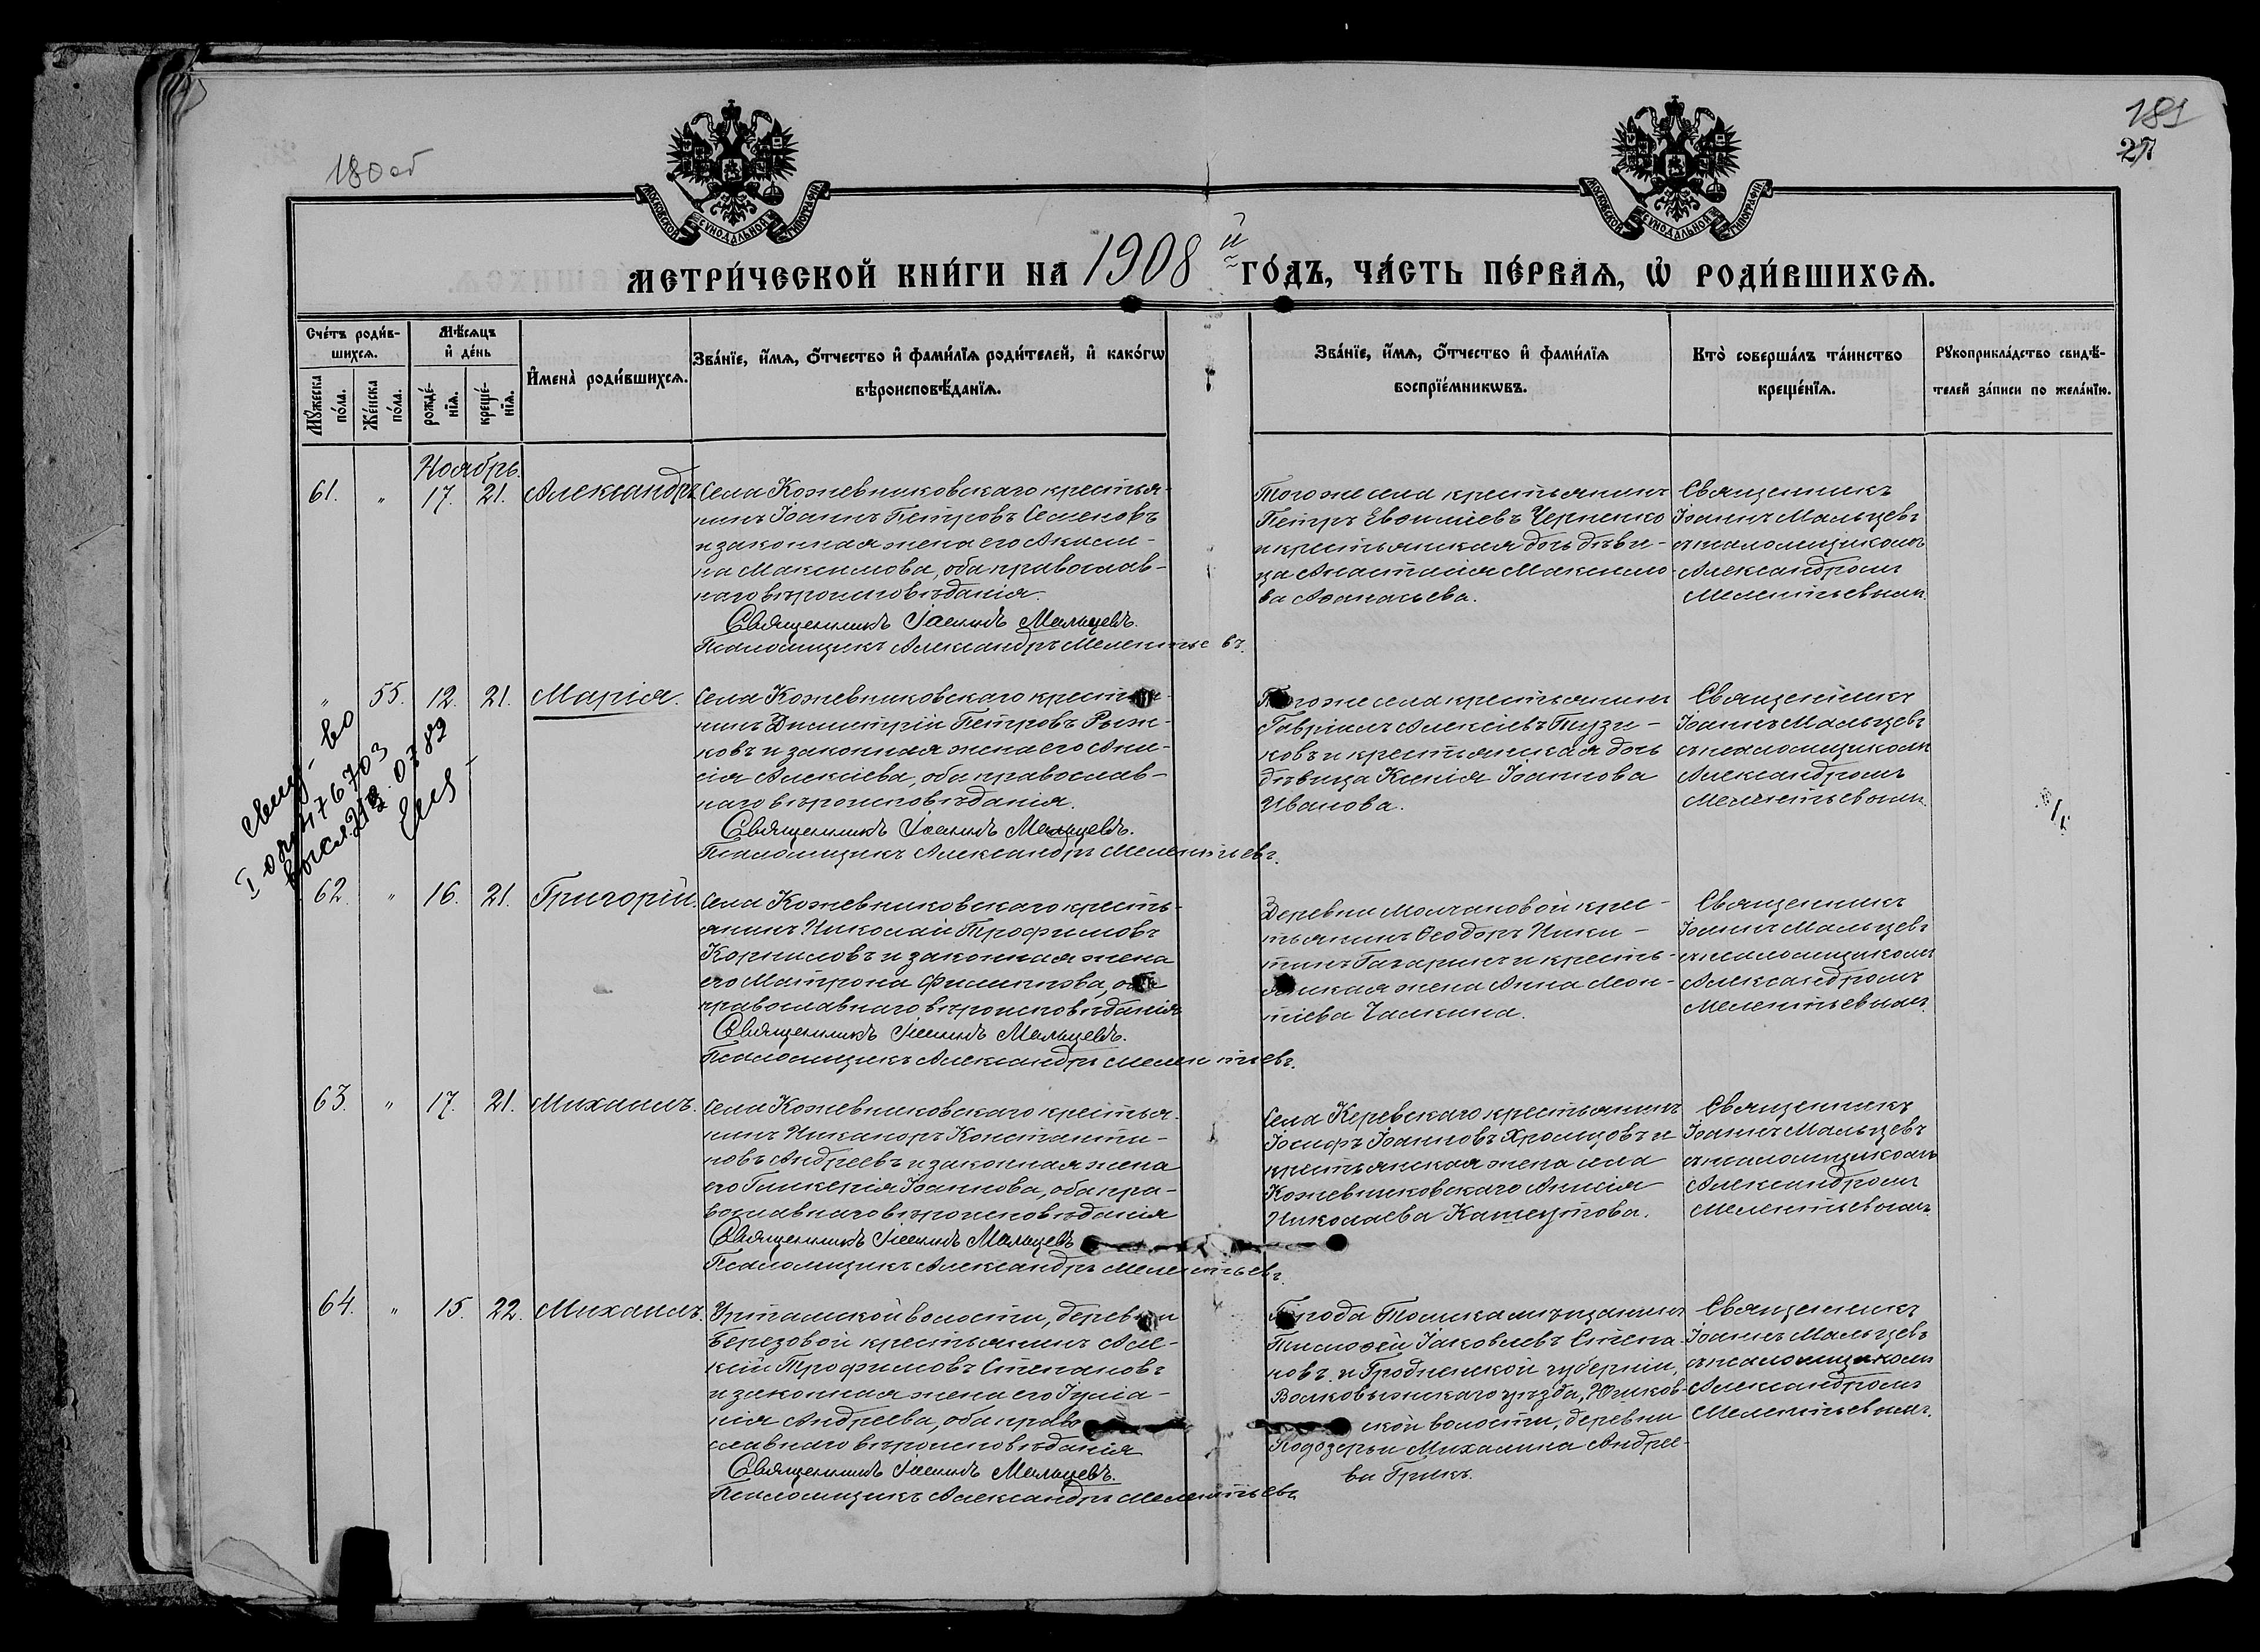 180 об
181
27
МОСКОВСКОЙ СУНОДАЛЬНОЙ ТИПОГРАФІИ
МОСКОВСКОЙ СУНОДАЛЬНОЙ ТИПОГРАФІИ
МЕТРИ́ЧЕСКОЙ КНИ́ГИ НА 1908 й ГО́ДЪ, ЧА́СТЬ ПЕ́РВАѦ, Ѡ҆ РОДИ́ВШИХСѦ.
Сче́тъ роди́в-
шихсѧ.
Мꙋ́жеска по́ла.
Же́нска по́ла.
Мѣ́сѧцъ
и҆ де́нь
рожде́-
нїѧ.
креще́-
нїѧ.
И҆мена̀ роди́вшихсѧ.
Зва́нїе, и҆́мѧ, ѻ҆́тчество и҆ фами́лїѧ роди́телей, и҆ како́гѡ
вѣроисповѣ́данїѧ.
Зва́нїе, и҆́мѧ, ѻ҆́тчество и҆ фами́лїѧ
воспрїе́мникѡвъ.
Кто̀ соверша́лъ та́инство
креще́нїѧ.
Рꙋкоприкла́дство свидѣ́-
телей за́писи по жела́нїю.
Ноябрь.
61. " 17. 21. Александръ
Села Кожевниковскаго крестья-
нинъ Іоаннъ Петровъ Семеновъ
и законная жена его Акили-
на Максимова, оба православ-
наго вѣроисповѣданія.
Священникъ Іоаннъ Мальцевъ.
Псаломщикъ Александръ Мелентьевъ.
Того же села крестьянинъ
Петръ Черненко
и крестьянская дочь дѣви-
ца Анастасія Максимо-
ва Аѳанасьева.
Священникъ
Іоаннъ Мальцевъ
съ псаломщикомъ
Александромъ
Мелентьевымъ.
" 55. 12. 21. Марія.
Села Кожевниковскаго крестья-
нинъ Димитрій Петровъ Рыж-
ковъ и законная жена его Ани-
сія Алексіева, оба православ-
наго вѣроисповѣданія.
Священникъ Іоаннъ Мальцевъ.
Псаломщикъ Александръ Мелентьевъ.
Того же села крестьянинъ
Гавріилъ Алексіевъ Пузи-
ковъ и крестьянская дочь
дѣвица Ксенія Іоаннова
Иванова.
Священникъ
Іоаннъ Мальцевъ
съ псаломщикомъ
Александромъ
Мелентьевымъ.
62. " 16. 21. Григорій.
Села Кожевниковскаго кресть-
янинъ Николай Трофимовъ
Корниловъ и законная жена
его Матрона Филиппова, оба
православнаго вѣроисповѣданія.
Священникъ Іоаннъ Мальцевъ.
Псаломщикъ Александръ Мелентьевъ.
Деревни Молчановой крес-
тьянинъ Ѳеодоръ Ники-
тинъ Гагаринъ и кресть-
янская жена Анна Леон-
тіева Чалкина.
Священникъ
Іоаннъ Мальцевъ
съ псаломщикомъ
Александромъ
Мелентьевымъ.
63. " 17. 21. Михаилъ.
Села Кожевниковскаго крестья-
нинъ Никаноръ Константи-
новъ Андреевъ и законная жена
его Гликерія Іоаннова, оба пра-
вославнаго вѣроисповѣданія
Священникъ Іоаннъ Мальцевъ
Псаломщикъ Александръ Мелентьевъ.
Села Киревскаго крестьянинъ
Іосифъ Іоанновъ Хромцовъ и
крестьянская жена села
Кожевниковскаго Анисія
Николаева
Священникъ
Іоаннъ Мальцевъ
съ псаломщикомъ
Александромъ
Мелентьевымъ.
64. " 15. 22. Михаилъ.
Уртамской волости, деревни
Березовой крестьянинъ Але-
ксій Трофимовъ Степановъ
и законная жена его Іулiа-
нія Андреева, оба право
славнаго вѣроисповѣданія
Священникъ Іоаннъ Мальцевъ.
Псаломщикъ Александръ Мелентьевъ.
Города Томска мѣщанинъ
Тимоѳей Іаковлевъ Степа-
новъ и Гродненской губерніи,
Волковыжскаго уѣзда,
ской волости, деревни
Подозерьи Михалина Андрее-
ва Гринъ.
Священникъ
Іоаннъ Мальцевъ
съ псаломщикомъ
Александромъ
Мелентьевымъ.